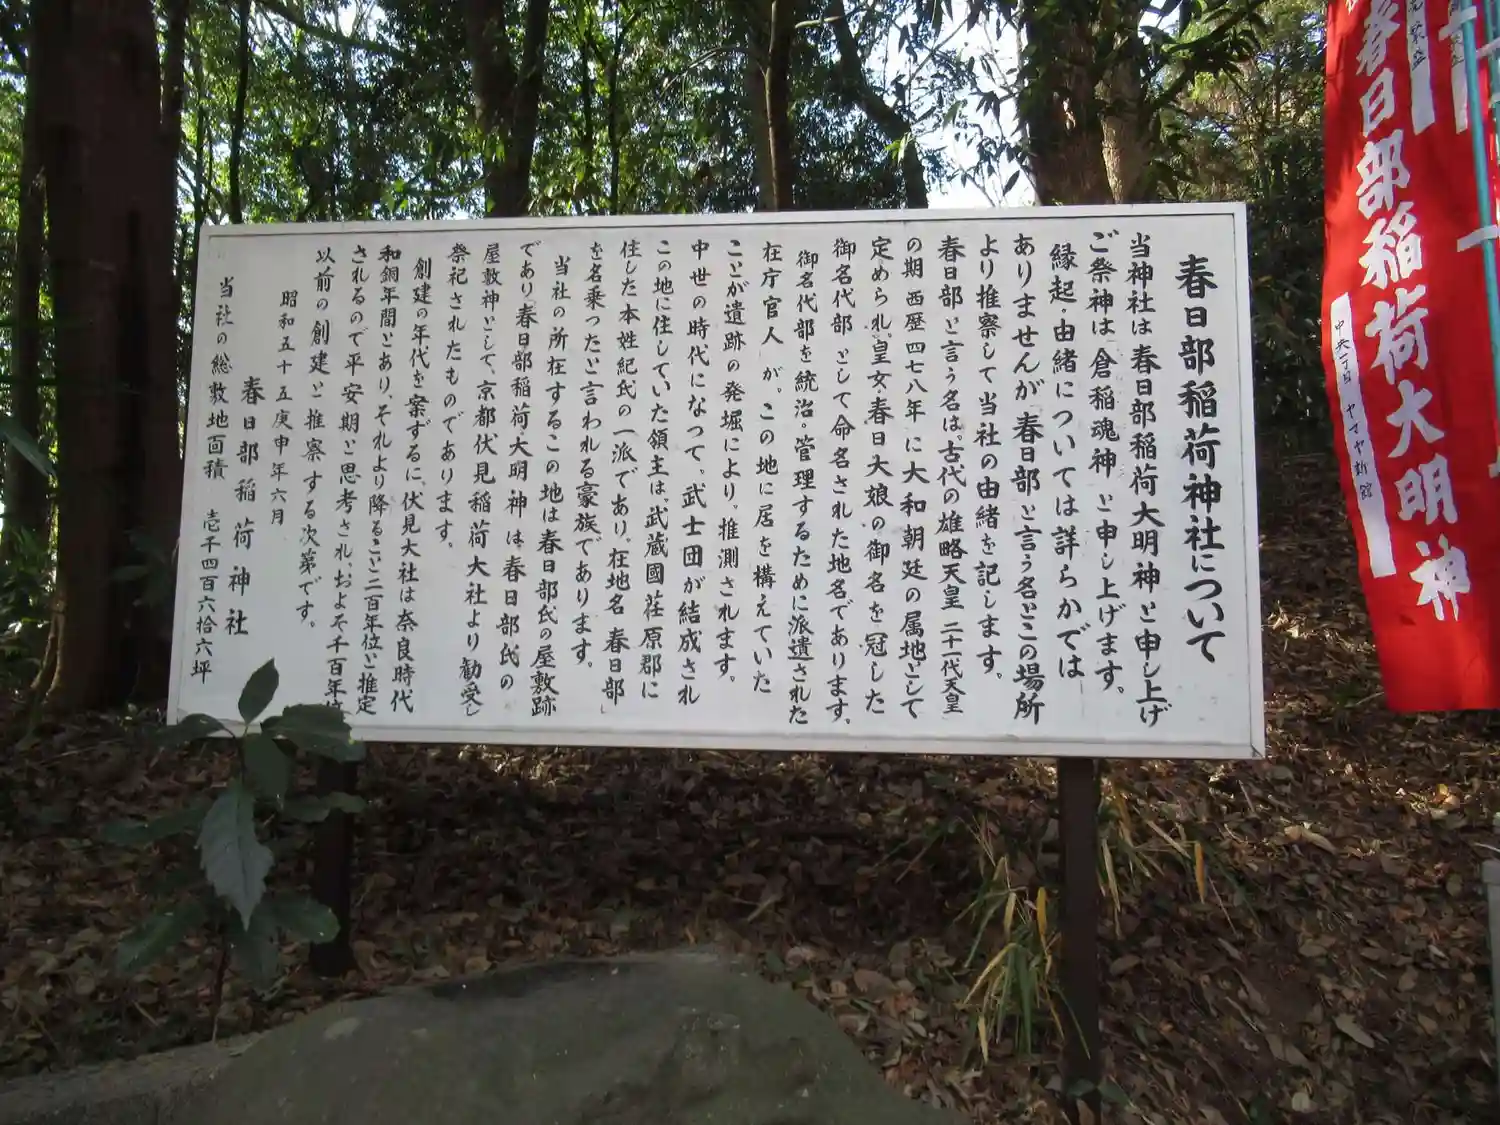 春日部稲荷神社について
当神社は春日部稲荷大明神と申し上げ
ご祭神は「倉稲魂神」と申し上げます。
縁起・由緒については詳らかでは
ありませんが「春日部」と言う名とこの場所
より推察して当社の由緒を記します。
春日部」と言う名は。古代の雄略天皇 二十一代天皇」
の期「西歴四七八年」に大和朝廷の属地として
定められ。皇女・春日大娘の御名を冠した
御名代部」として命名された地名であります、
御名代部を統治。管理するために派遣された
在庁官人」が。この地に居を構えていた
ことが遺跡の発掘により。推測されます。
中世の時代になって。武士団が結成され
この地に住していた領主は、武蔵國荏原郡に
住した本姓紀氏の一派であり。在地名「春日部」
を名乗ったと言われる豪族であります。
当社の所在するこの地は春日部氏の屋敷跡
であり「春日部稲荷・大明神」は、春日部氏の
屋敷神として、京都伏見稲荷大社より勧受し
祭祀されたものであります。
創建の年代を案ずるに、伏見大社は奈良時代
和銅年間とあり、それより降ること二百年位と推定
されるので平安期と思考され、およそ千百年位
以前の創建と推察する次第です。
昭和五十五庚申年六月
春日部稲荷神社
当社の総敷地面積 壱千四百六拾六坪
春日部稲荷大明神
中央一丁目 ヤマヤ新館